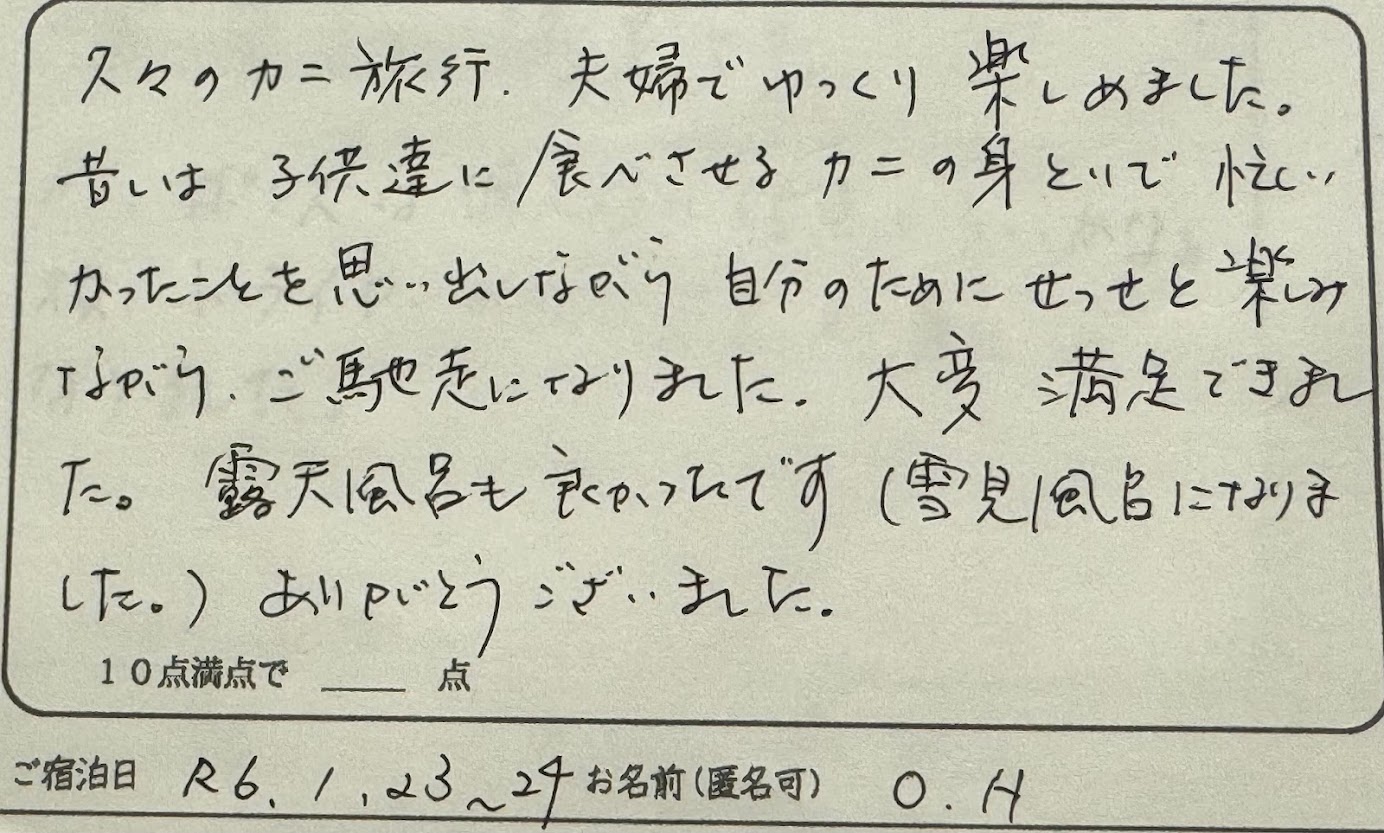 久々のカニ旅行.夫婦でゆっくり楽しめました。
昔しは子供達に食べさせるカニの身といで忙しい
かったことを思い出しながら自分のためにせっせと楽しみ
ながら、ご馳走になりました。大変満足できまし
た。露天風呂も良かったです(雪見風呂になりま
した。)ありがとうございました。
10点満点で ____ 点
ご宿泊日 R6.1.23~24 お名前(匿名可) O.H